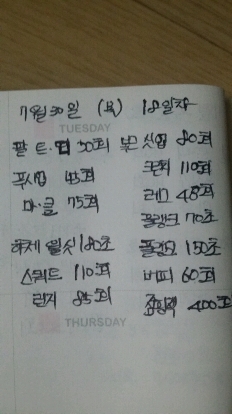 7월 30일 (목) 18일차
TUESDAY
팔 트·덤 50회 복근 싯업 80회
푸시업 45회 크런치 110회
마·클 75회 레그 45회
플랭크 70초
하체 월싯 180초 플랭크 150초
스쿼트 110회 버피 60회
런지 85회 점핑잭 400회
THURSDAY